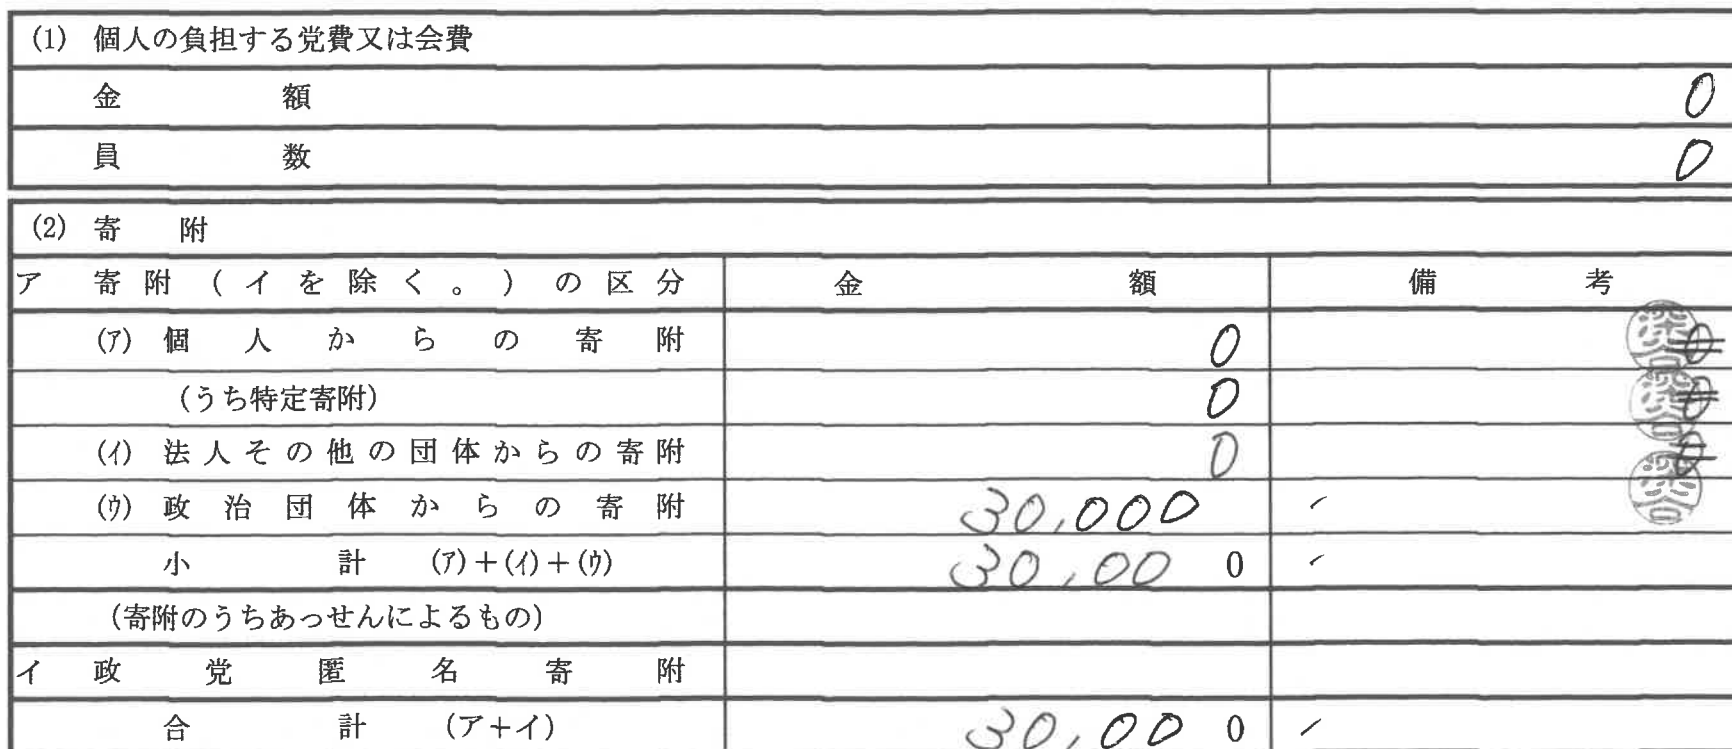 (1) 個人の負担する党費又は会費
金 額 0
員 数 0
(2) 寄 附
ア 寄附(イを除く。)の区分 金 額 備 考
(ア) 個人からの寄附 0 0
(うち特定寄附) 0 0
(イ) 法人その他の団体からの寄附 0 0
(ウ) 政治団体からの寄附 30,000
小 計 (ア)+(イ)+(ウ) 30,000
(寄附のうちあっせんによるもの)
イ 政党匿名寄附
合 計 (ア+イ) 30,000